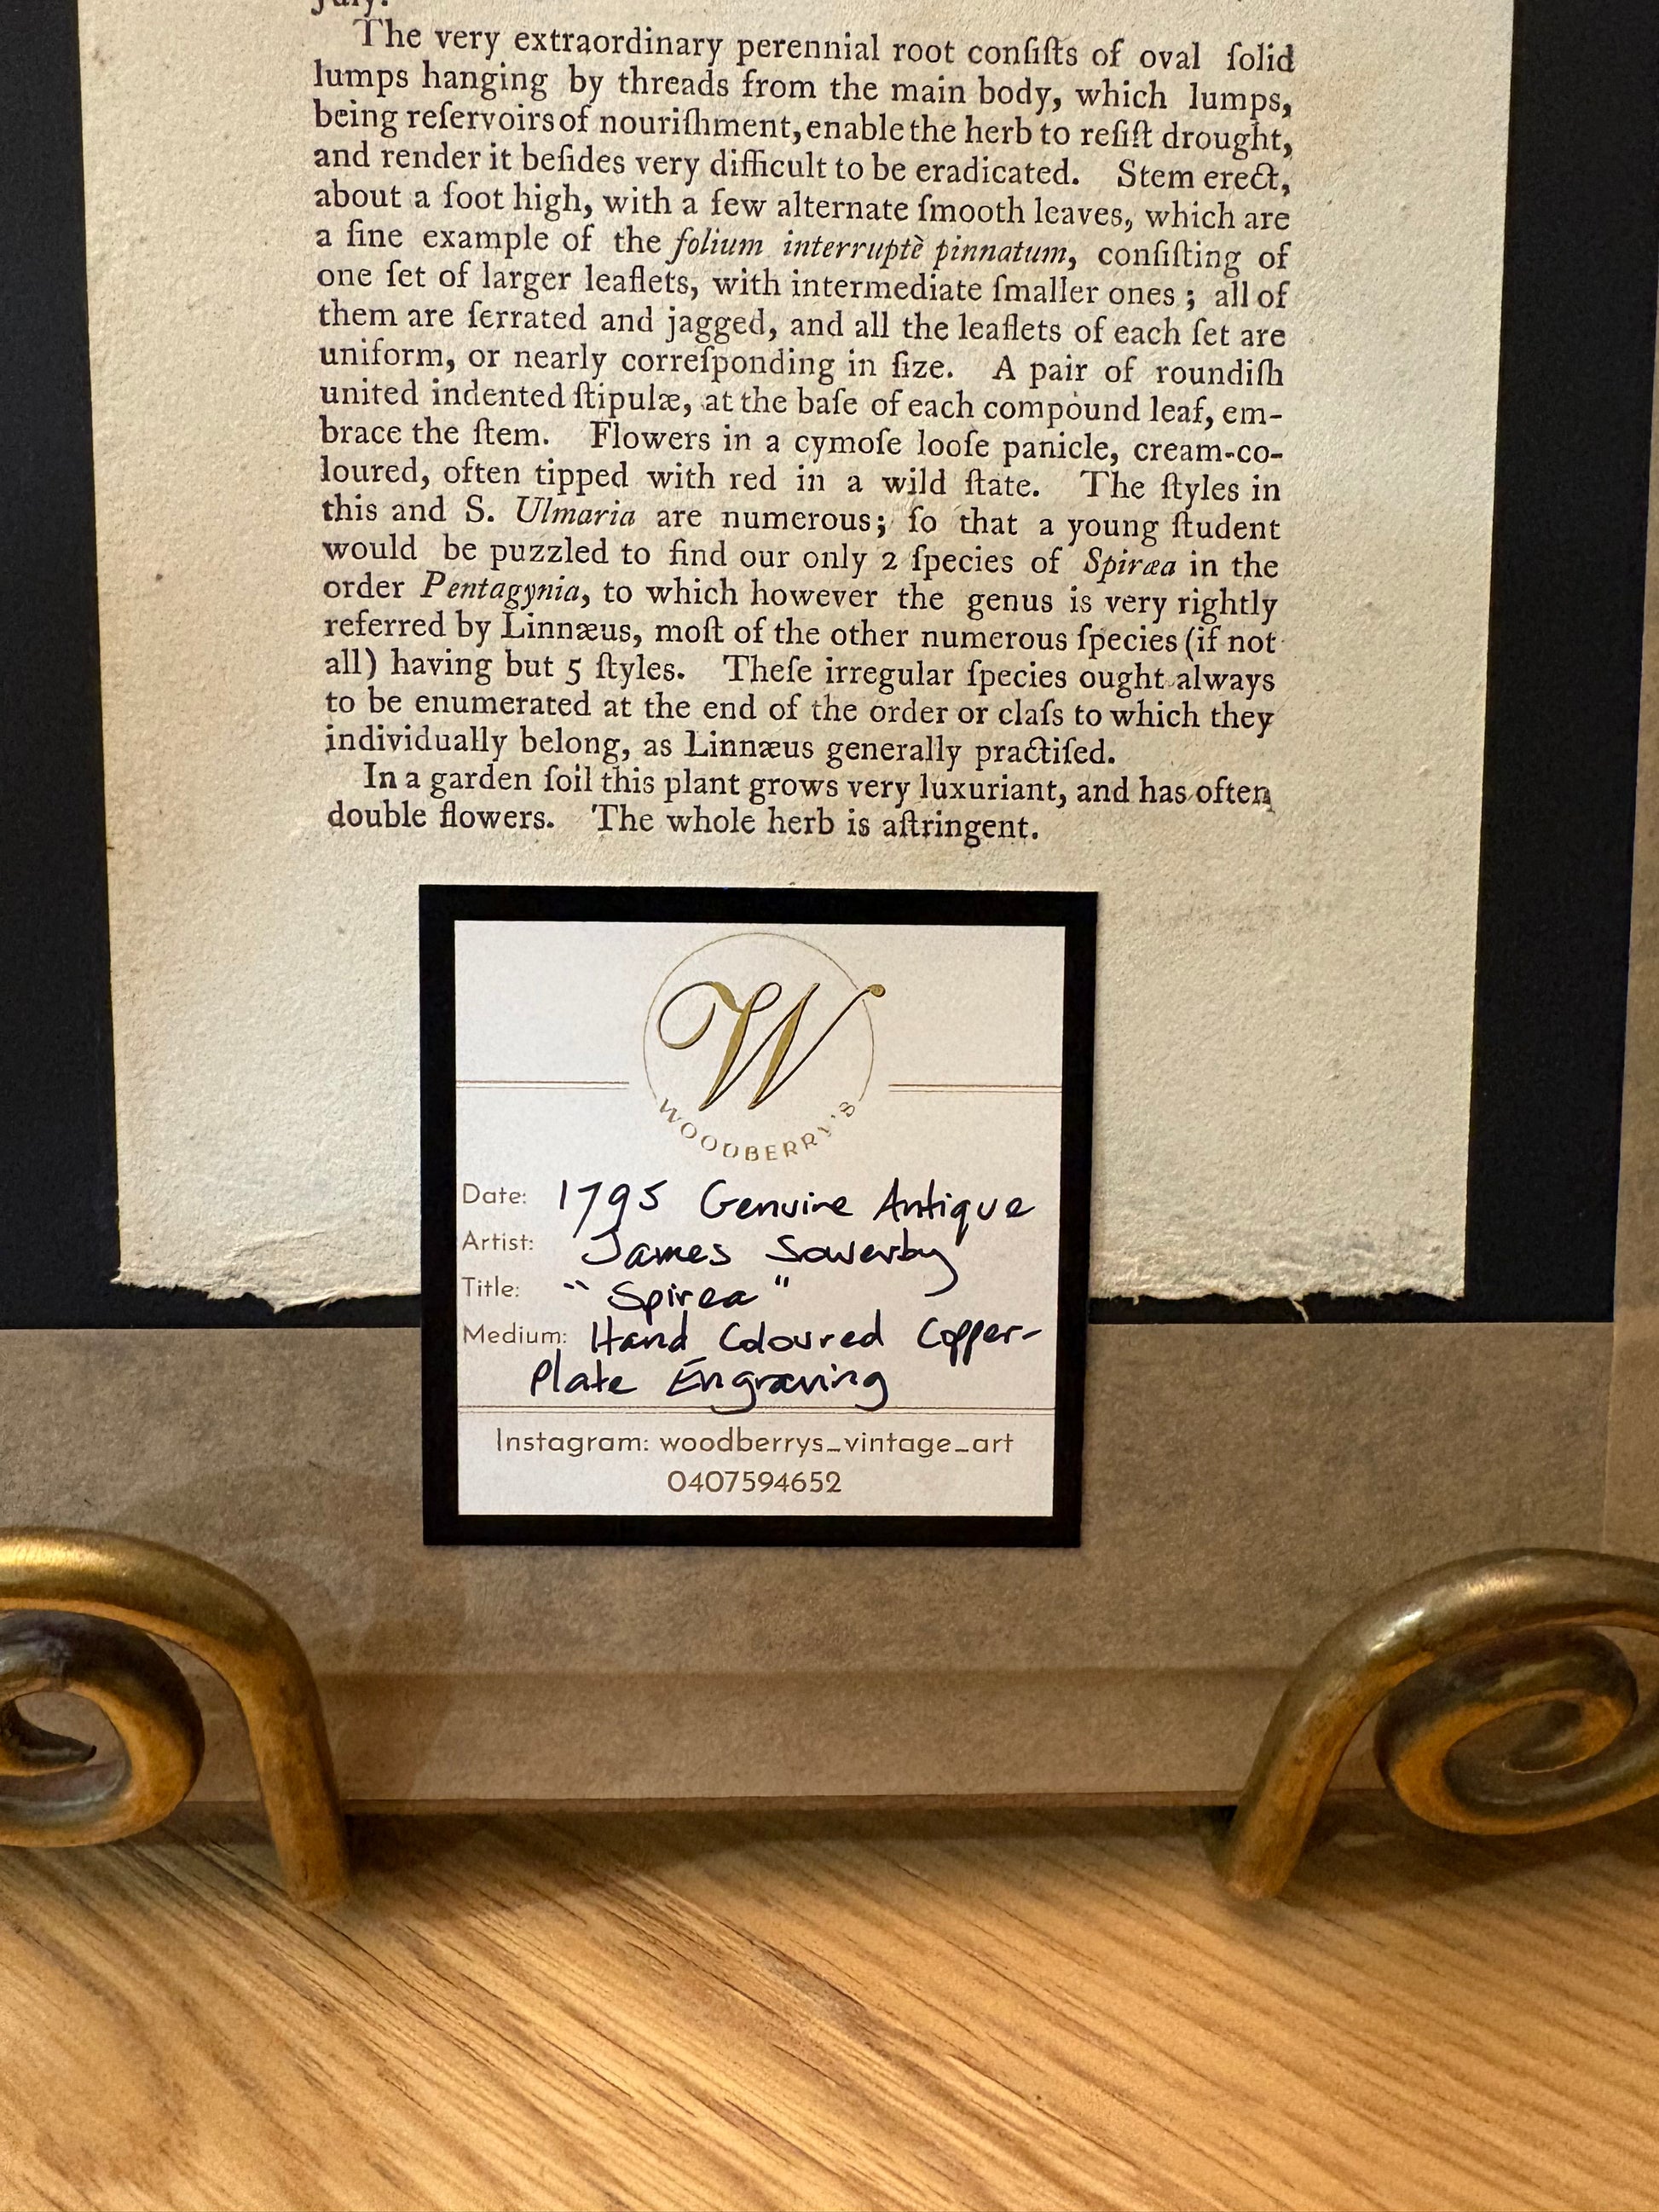 July.
The very extraordinary perennial root conſiſts of oval ſolid
lumps hanging by threads from the main body, which lumps,
being reſervoirs of nouriſhment, enable the herb to reſiſt drought,
and render it beſides very difficult to be eradicated. Stem erect,
about a foot high, with a few alternate ſmooth leaves, which are
a fine example of the folium interruptè pinnatum, conſiſting of
one ſet of larger leaflets, with intermediate ſmaller ones; all of
them are ſerrated and jagged, and all the leaflets of each ſet are
uniform, or nearly correſponding in ſize. A pair of roundiſh
united indented ſtipulæ, at the baſe of each compound leaf, em-
brace the ſtem. Flowers in a cymoſe looſe panicle, cream-co-
loured, often tipped with red in a wild ſtate. The ſtyles in
this and S. Ulmaria are numerous; ſo that a young ſtudent
would be puzzled to find our only 2 ſpecies of Spiræa in the
order Pentagynia, to which however the genus is very rightly
referred by Linnæus, moſt of the other numerous ſpecies (if not
all) having but 5 ſtyles. Theſe irregular ſpecies ought always
to be enumerated at the end of the order or claſs to which they
individually belong, as Linnæus generally practiſed.
In a garden ſoil this plant grows very luxuriant, and has often
double flowers. The whole herb is aſtringent.
W
WOODBERRY'S
Date: 1795 Genuine Antique
Artist: James Sowerby
Title: "Spirea"
Medium: Hand Coloured Copper-
Plate Engraving
Instagram: woodberrys_vintage_art
0407594652